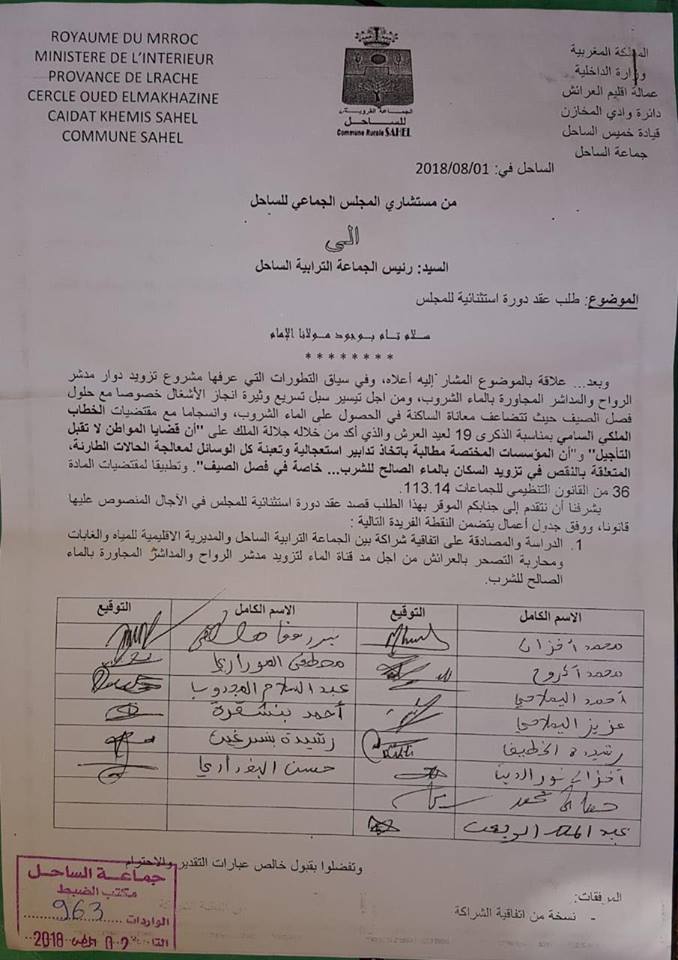 ROYAUME DU MRROC
MINISTERE DE L'INTERIEUR
PROVANCE DE LRACHE
CERCLE OUED ELMAKHAZINE
CAIDAT KHEMIS SAHEL
COMMUNE SAHEL
الجماعة القروية
للساحل
Commune Rurale SAHEL
المملكة المغربية
وزارة الداخلية
عمالة اقليم العرائش
دائرة وادي المخازن
قيادة خميس الساحل
جماعة الساحل
الساحل في: 2018/08/01
من مستشاري المجلس الجماعي للساحل
الى
السيد: رئيس الجماعة الترابية الساحل
الموضوع: طلب عقد دورة استثنائية للمجلس
سلام تام بوجود مولانا الإمام
* * * * * * * *
وبعد... علاقة بالموضوع المشار إليه أعلاه، وفي سياق التطورات التي عرفها مشروع تزويد دوار مدشر
الرواح والمداشر المجاورة بالماء الشروب، ومن اجل تيسير سبل تسريع وثيرة انجاز الأشغال خصوصا مع حلول
فصل الصيف حيث تتضاعف معاناة الساكنة في الحصول على الماء الشروب، وانسجاما مع مقتضيات الخطاب
الملكي السامي بمناسبة الذكرى 19 لعيد العرش والذي أكد من خلاله جلالة الملك على "أن قضايا المواطن لا تقبل
التأجيل" و"أن المؤسسات المختصة مطالبة باتخاذ تدابير استعجالية وتعبئة كل الوسائل لمعالجة الحالات الطارئة،
المتعلقة بالنقص في تزويد السكان بالماء الصالح للشرب... خاصة في فصل الصيف". وتطبيقا لمقتضيات المادة
36 من القانون التنظيمي للجماعات 113.14.
يشرفنا أن نتقدم إلى جنابكم الموقر بهذا الطلب قصد عقد دورة استثنائية للمجلس في الآجال المنصوص عليها
قانونا، ووفق جدول أعمال يتضمن النقطة الفريدة التالية :
1. الدراسة والمصادقة على اتفاقية شراكة بين الجماعة الترابية الساحل والمديرية الاقليمية للمياه والغابات
ومحاربة التصحر بالعرائش من اجل مد قناة الماء لتزويد مدشر الرواح والمداشر المجاورة بالماء
الصالح للشرب.
الاسم الكامل التوقيع الاسم الكامل التوقيع
محمد
محمد مصطفى الموراري
أحمد اليملاحي عبد السلام المجدوب
عزيز اليملاحي أحمد بنشقرة
رشيدة رشيدة
نور الدين حسن
محمد
وتفضلوا بقبول خالص عبارات التقدير والاحترام
جماعة الساحل
مكتب الضبط
الواردات 963
2018
المرفقات:
- نسخة من اتفاقية الشراكة